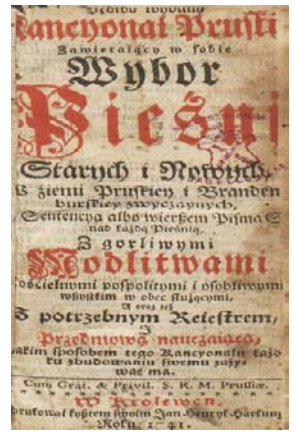 Kancyonał Pruski
Zawierający w sobie
Wybor
Pieśni
Starych i Nowych,
W ziemi Pruskiey i Branden
burskiey zwyczaynych,
Sentencya albo wierszem Pisma S
nad każdą Pieśnią.
Z gorliwymi
Modlitwami
Kościelnymi pospolitymi i osobliwymi
wszytkim w obec służącymi,
A oraz też
Z potrzebnym Reiestrem,
I
Przedmową nauczaiącą,
jakim sposobem tego Kancyonału każd
ku zbudowaniu swemu zaży-
wać ma.
Cum Grat. & Privil. S. R. M. Prussiæ.
W Krolewcu,
Drukował kosztem swoim Jan Henryk Hartung
Roku, 1741.